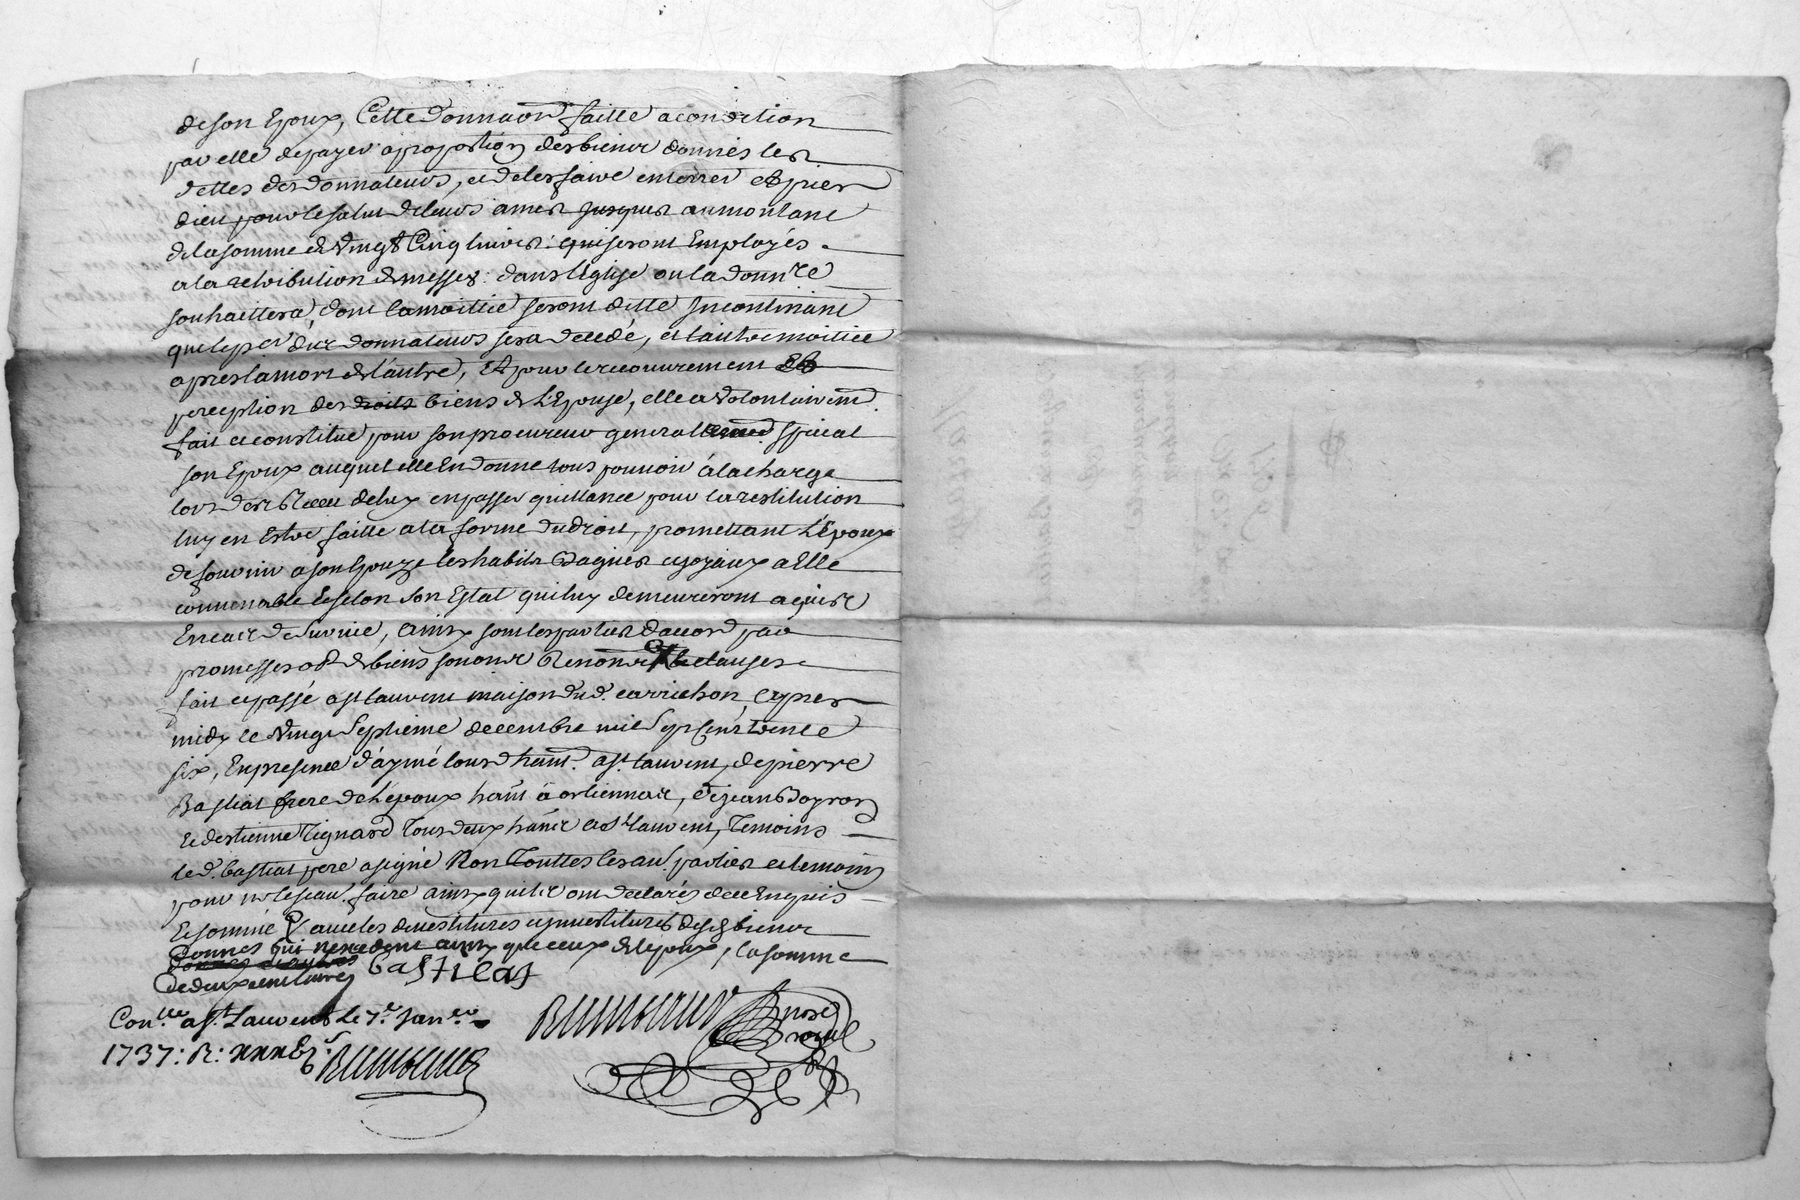 de son Epoux, Cette donnaon faitte a condition
par elle de payer a proportion des biens donnés les
dettes des donnateurs, et de les faire enterrer et prier
dieu pour le salut de leurs ames jusques au montant
de la somme de vingt Cinq livres qui seront Employés
a la retribution de messes dans l'Eglise ou la donn.re
souhaittera dont la moittié seront ditte Incontinant
que le per des donnateurs sera decedé, et l'autre moittiée
apres la mort de l'autre, Et pour le recouvrement Et
perception des droits biens de L'Epouse, elle a volontairem.t
fait et constitué pour son procureur general spécial
son Epoux auquel elle En donne tous pouvoir à la charge
lors des Receu d'elux en passer quittance pour la restitution
luy en Estre faitte a la forme du droit, promettant L'Epoux
de fournir a son Epouze les habits Bagues et joyaux a Elle
convenable Et selon son Estat qui luy demeureront aquis
En cas de Survie, ainsy sont les parties d'acord par
promesses ob de biens soumons Renons & clauses
fait et passé a st laurent maison dud. carrichon, apres
midy le vingt Septieme decembre mil Sept Cents trente
six, En presence d'aymé lourd hant. a st. laurent, de pierre
Bastiat frere de L'époux hant à orliennas, de jean Bayron
Et d'estienne Tignard Tous deux hants a st laurent, Temoins
le d. bastiat pere a signé Non Touttes les au. parties et temoins
pour ne le scav. faire ainsy qu'ils ont declarés de ce Enquis
Et sommé & avec les devestitures et investitures desd biens
donnés qui n'excedent ainsy que ceux de l'epoux, la somme
de deux cent livres bastiat
Con.llé a st. Laurent le 7.e Janer
1737: R: